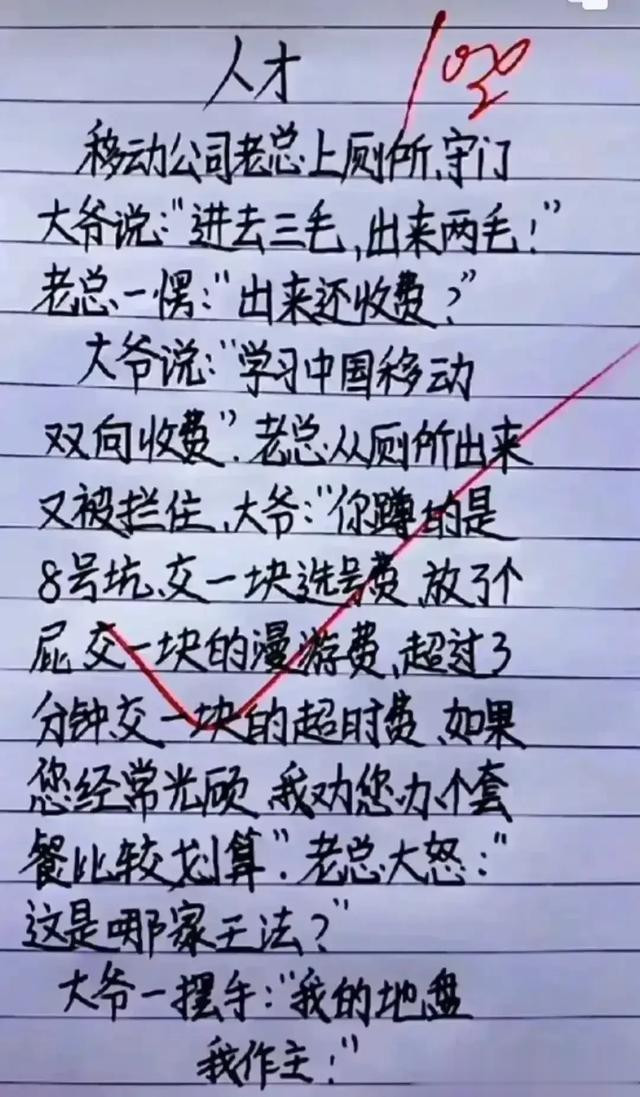 人才
100
移动公司老总上厕所,守门
大爷说:"进去三毛,出来两毛!"
老总一愣:"出来还收费?"
大爷说:"学习中国移动
双向收费".老总从厕所出来
又被拦住,大爷:"你蹲的是
8号坑,交一块选号费,放了个
屁交一块的漫游费,超过3
分钟交一块的超时费,如果
您经常光顾 我劝您办个套
餐比较划算".老总大怒:"
这是哪家王法?"
大爷一摆手:"我的地盘
我作主!"